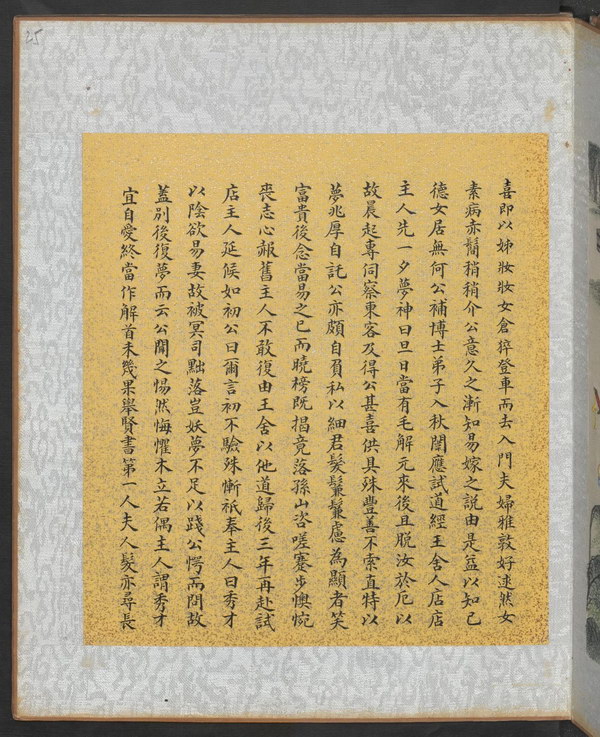 25
喜即以姊妝妝女倉猝登車而去入門夫婦雅敦好逑然女
素病赤鬝稍稍介公意久之漸知易嫁之說由是益以知己
德女居無何公補博士弟子入秋闈應試道經王舍人店店
主人先一夕夢神曰旦日當有毛解元來後且脫汝於厄以
故晨起專伺察東客及得公甚喜供具殊豐善不索直特以
夢兆厚自託公亦頗自負私以細君髮鬑鬑慮為顯者笑
富貴後念當易之已而曉榜既揭竟落孫山咨嗟蹇步懊惋
喪志心赧舊主人不敢復由王舍以他道歸後三年再赴試
店主人延候如初公曰爾言初不驗殊慚祇奉主人曰秀才
以陰欲易妻故被冥司黜落豈妖夢不足以踐公愕而問故
蓋別後復夢而云公聞之惕然悔懼木立若偶主人謂秀才
宜自愛終當作解首未幾果舉賢書第一人夫人髮亦尋長